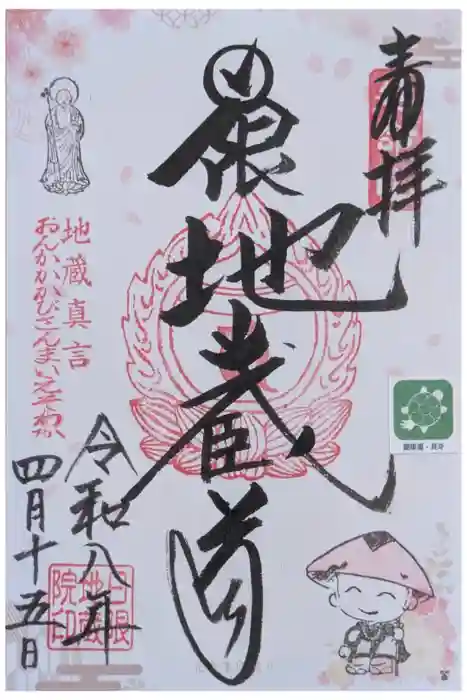 奉拝
日限地蔵尊
地蔵真言
おんかかかびさんまいえそわか
令和八年
四月十五日
日限
地蔵
院印
健康運・長寿